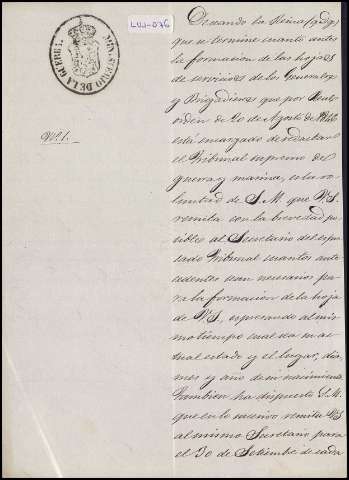 MINISTERIO DE LA GUERRA.
LUJ-076
Nº 1.
Deseando la Reina (q.d.g.)
que se termine cuanto antes
la formacion de las hojas
de servicios de los Generales
y Brigadieres que por Real
orden de 20 de Agosto de
está encargado de redactar
el Tribunal supremo de
guerra y marina, es la vo-
luntad de S. M. que V.S.
remita con la brevedad po-
sible al Secretario del espre-
sado Tribunal cuantos ante-
cedentes sean necesarios pa-
ra la formacion de la hoja
de V.S., espresando al mis-
mo tiempo cual sea su ac-
tual estado y el lugar, dia,
mes y año de su nacimiento.
Tambien ha dispuesto S.M.
que en lo sucesivo remita V.S.
al mismo Secretario para
el 30 de Setiembre de cada